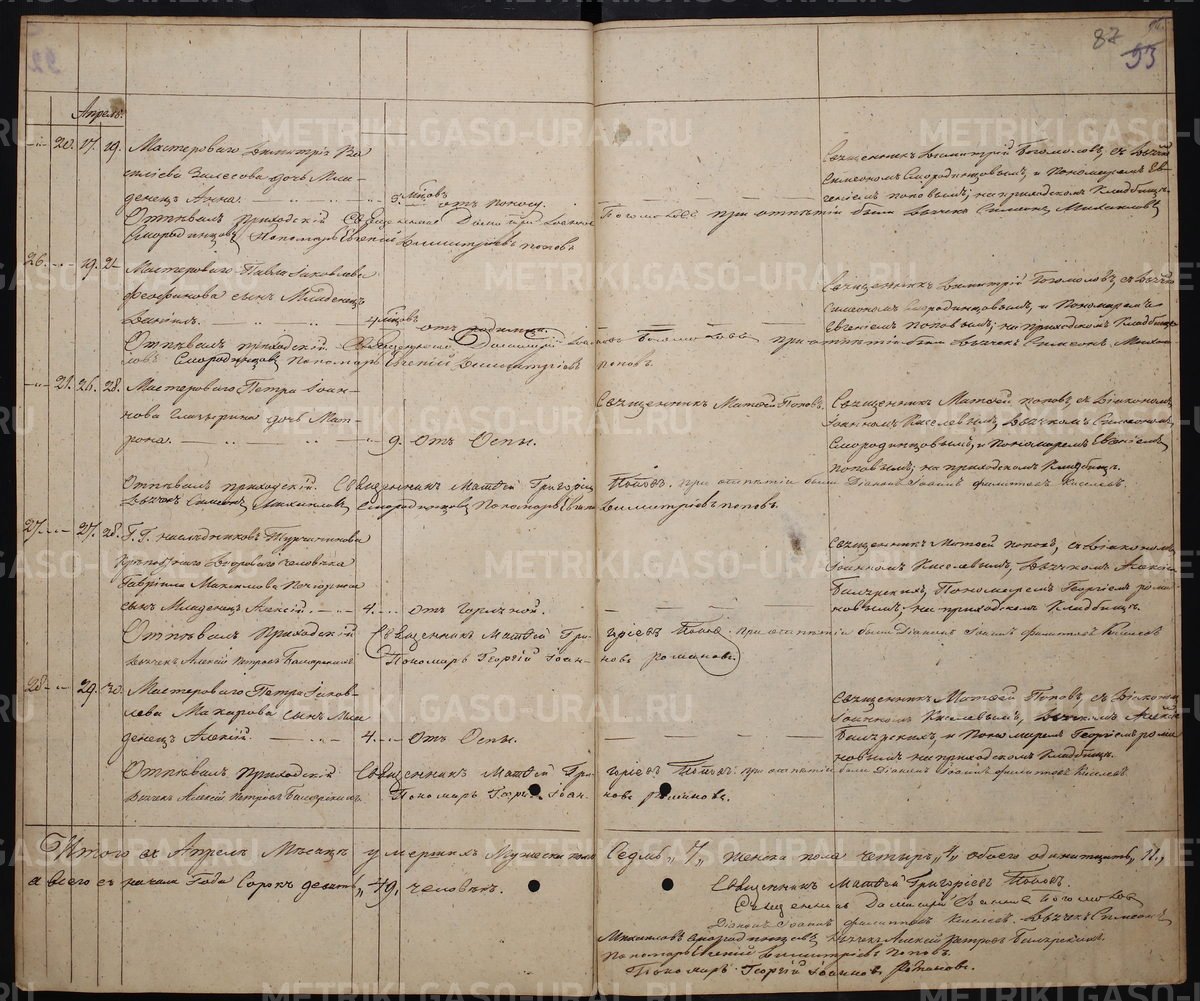 87
93
Апрель.
20. 17. 19. Мастероваго Димитрія Ва
силіева Залесова дочь Мла-
денецъ Анна. 3. мѣсцовъ отъ поносу.
Священникъ Димитрій Богомоловъ, съ Дьячкомъ
Симеономъ Смородинцовымъ, и Пономаремъ Ев-
геніемъ Поповымъ; на приходскомъ Кладбищѣ.
Отпѣвалъ приходскій Священникъ Димитрій Іоанновъ
Богомоловъ при отпѣтіи были Дьячекъ Симеонъ Михаиловъ
Смородинцовъ Пономарь Евгеній Димитріевъ Поповъ
26. 19. 21. Мастероваго Павла Іаковлева
Феофанова сынъ Младенецъ
Даніилъ. 4 мѣсцовъ отъ родимца.
Священникъ Димитрій Богомоловъ, съ Дьячкомъ
Симеономъ Смородинцовымъ, и Пономаремъ
Евгеніемъ Поповымъ; на приходскомъ Кладбищѣ
Отпѣвалъ приходскій Священникъ Димитрій Іоанновъ Богомоловъ при отпѣтіи были Дьячекъ Симеонъ Михаи
ловъ Смородинцовъ Пономарь Евгеній Димитріевъ Поповъ.
21. 26. 28. Мастероваго Петра Іоан-
нова Глазырина дочь Мат-
рона. 9. отъ Оспы.
Священникъ Матѳей Поповъ.
Священникъ Матѳей Поповъ, съ Діакономъ
Іоанномъ Киселевымъ, Дьячкомъ Симеономъ
Смородинцовымъ, и Пономаремъ Евгеніемъ
Поповымъ; на приходскомъ Кладбищѣ.
Отпѣвалъ приходскій Священникъ Матѳей Григоріевъ Поповъ. при отпѣтіи были Діаконъ Іоаннъ Филиповъ Киселевъ.
Дьячекъ Симеонъ Михаиловъ Смородинцовъ Пономарь Евгеній Димитріевъ Поповъ.
27. 27. 28. Г. Г. наслѣдниковъ Турчанинова
Крѣпостнаго Двороваго человѣка
Гавріила Максимова
сынъ Младенецъ Алексій. 4. отъ горячкой.
Священникъ Матѳей Поповъ, съ Діакономъ
Іоанномъ Киселевымъ, Дьячкомъ Алексіемъ
Пономаремъ Георгіемъ Рома
новымъ; на приходскомъ Кладбищѣ.
Отпѣвалъ Приходскій Священникъ Матѳей Григоріевъ Поповъ при отпѣтіи были Діаконъ Іоаннъ Филиповъ Киселевъ
Дьячекъ Алексій Петровъ Пономарь Георгій Іоанновъ Романовъ.
28. 29. 30. Мастероваго Петра Іаков-
лева Макарова сынъ Мла
денецъ Алексій. 4. отъ Оспы.
Священникъ Матѳей Поповъ, съ Діакономъ
Іоанномъ Киселевымъ, Дьячкомъ Алексіемъ
и Пономаремъ Георгіемъ Рома
новымъ на приходскомъ Кладбищѣ.
Отпѣвалъ Приходскій Священникъ Матѳей Григоріевъ Поповъ при отпѣтіи были Діаконъ Іоаннъ Филиповъ Киселевъ
Дьячекъ Алексій Петровъ Пономарь Георгій Іоанновъ Романовъ.
Итого въ Апрелѣ Мѣсяцѣ умершихъ Мужеска пола Седмь „7„ женска пола четыре „4„ обоего одинатцать „11.„
а всего съ начала Года Сорокъ девять „49„ человѣкъ.
Священникъ Матѳей Григоріевъ Поповъ.
Священникъ Димитрій Іоанновъ Богомоловъ
Діаконъ Іоаннъ Филиповъ Киселевъ. Дьячекъ Симеонъ
Михаиловъ Смородинцовъ Дьячекъ Алексій Петровъ
Пономарь Евгеній Димитріевъ Поповъ.
Пономарь Георгій Іоанновъ Романовъ.
METRIKI.GASO-URAL.RU